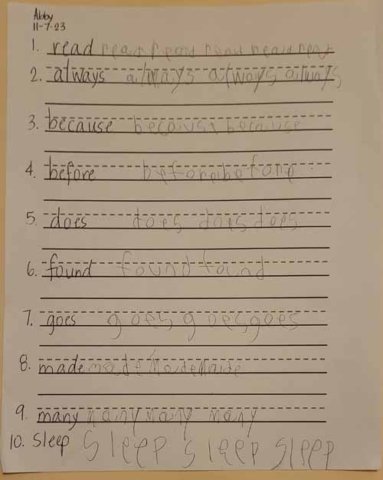 Abby
11-7-23
1. read read read read read read
2. always always always always
3. because because because
4. before before before
5. does does does does
6. found found found
7. goes goes goes goes
8. made made Made Made
9. many many many many
10. Sleep Sleep Sleep Sleep